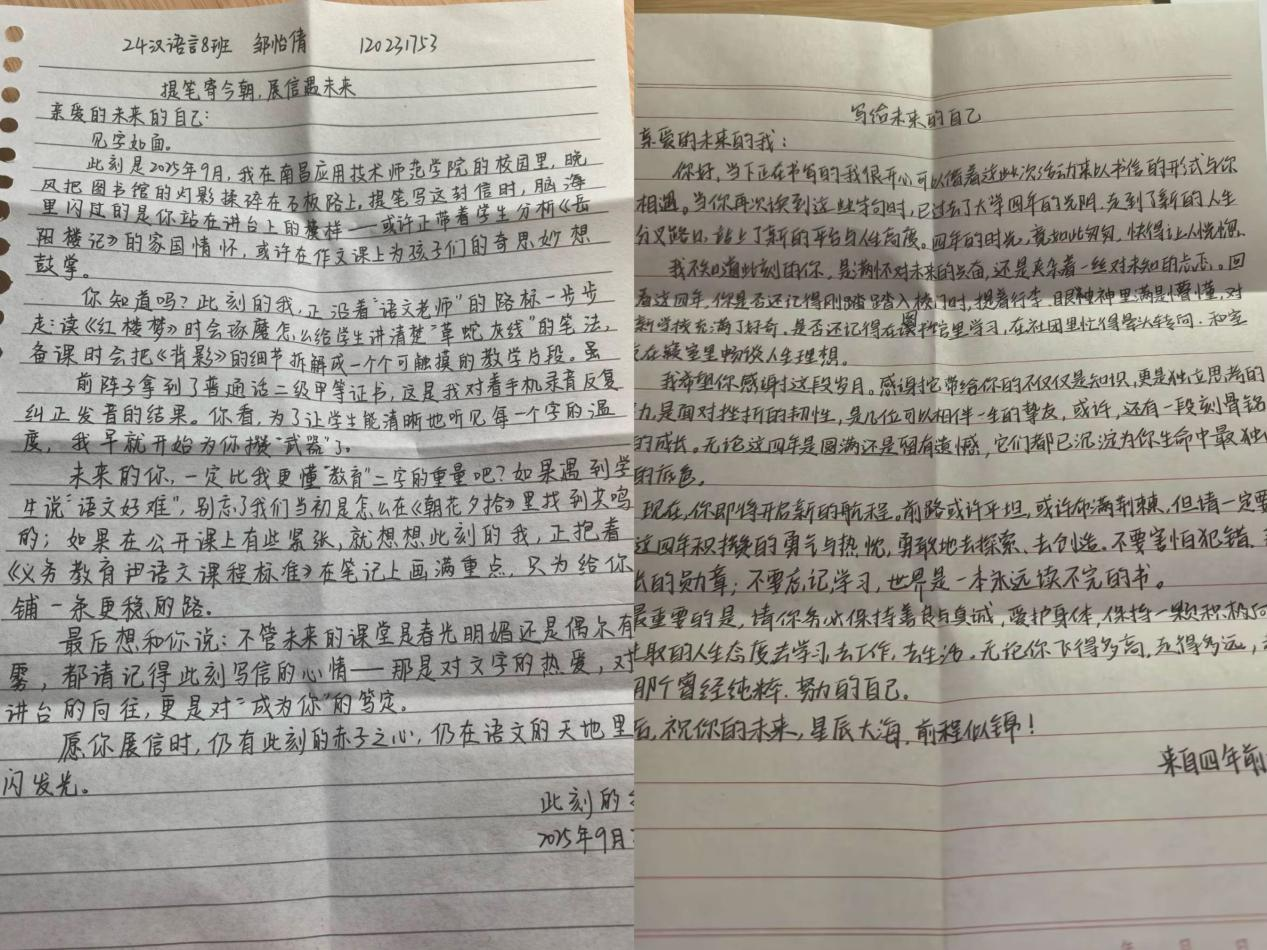 24汉语言8班 邹怡倩 120231753
提笔寄今朝,展信遇未来
亲爱的未来的自己:
见字如面。
此刻是2025年9月,我在南昌应用技术师范学院的校园里,晚
风把图书馆的灯影揉碎在石板路上,提笔写这封信时,脑海
里闪过的是你站在讲台上的模样——或许正带着学生分析《岳
阳楼记》的家国情怀,或许在作文课上为孩子们的奇思妙想
鼓掌。
你知道吗?此刻的我,正沿着“语文老师”的路标一步步
走:读《红楼梦》时会琢磨怎么给学生讲清楚“草蛇灰线”的笔法,
备课时会把《背影》的细节拆解成一个个可触摸的教学片段。虽
前阵子拿到了普通话二级甲等证书,这是我对着手机录音反复
纠正发音的结果。你看,为了让学生能清晰地听见每一个字的温
度,我早就开始为你攒“武器”了。
未来的你,一定比我更懂“教育”二字的重量吧?如果遇到学
生说“语文好难”,别忘了我们当初是怎么在《朝花夕拾》里找到共鸣
的;如果在公开课上有些紧张,就想想此刻的我,正抱着
《义务教育语文课程标准》在笔记上画满重点,只为给你
铺一条更稳的路。
最后想和你说:不管未来的课堂是春光明媚还是偶尔有
雾,都请记得此刻写信的心情——那是对文字的热爱,对
讲台的向往,更是对“成为你”的笃定。
愿你展信时,仍有此刻的赤子之心,仍在语文的天地里
闪发光。
此刻的
2025年9月
写给未来的自己
亲爱的未来的我:
你好,当下正在书写的我很开心可以借着这此次活动来以书信的形式与你
相遇。当你再次读到这些字句时,已过去了大学四年的光阴,走到了新的人生
分叉路口,站上了新的平台与人生高度。四年的时光,竟如此匆匆,快得让人恍惚.
我不知道此刻的你,是满怀对未来的兴奋,还是夹杂着一丝对未知的忐忑。回
看这四年,你是否还记得刚踏入校门时,提着行李,眼神里满是懵懂,对
新学校充满了好奇。是否还记得在图书馆里学习,在社团里忙得晕头转向.和室
在寝室里畅谈人生理想。
我希望你感谢这段岁月。感谢它带给你的不仅仅是知识,更是独立思考的
力,是面对挫折的韧性,是几位可以相伴一生的挚友,或许,还有一段刻骨铭
的成长。无论这四年是圆满还是留有遗憾,它们都已沉淀为你生命中最独
的底色。
现在,你即将开启新的航程。前路或许平坦,或许布满荆棘,但请一定要
这四年积攒的勇气与热忱,勇敢地去探索、去创造。不要害怕犯错,
长的勋章;不要忘记学习,世界是一本永远读不完的书。
最重要的是,请你务必保持善良与真诚,爱护身体,保持一颗积极向
进取的人生态度去学习,去工作,去生活。无论你飞得多高,走得多远,
那个曾经纯粹.努力的自己。
后,祝你的未来,星辰大海,前程似锦!
来自四年前
年 月